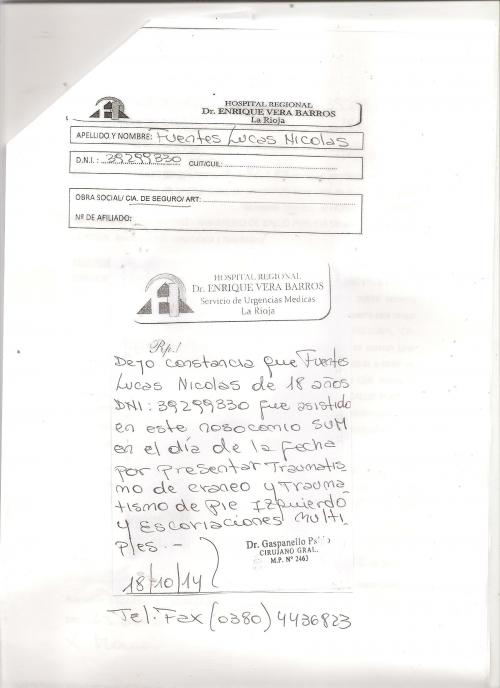 HOSPITAL REGIONAL
Dr. ENRIQUE VERA BARROS
La Rioja
APELLIDO Y NOMBRE: Fuentes Lucas Nicolas
D.N.I.: 39299330 CUIT/CUIL:
OBRA SOCIAL/ CIA. DE SEGURO/ ART:
Nº DE AFILIADO:
HOSPITAL REGIONAL
Dr. ENRIQUE VERA BARROS
Servicio de Urgencias Medicas
La Rioja
Rp./
Dejo constancia que Fuentes
Lucas Nicolas de 18 años
DNI: 39299330 fue asistido
en este nosocomio SUM
en el día de la fecha
por presentar Traumatis
mo de craneo y Trauma
tismo de pie Izquierdo
y Escoriaciones multi
ples.-
Dr. Gaspanello
CIRUJANO GRAL.
M.P. Nº 2463
18/10/14
Tel. Fax (0380) 4436823